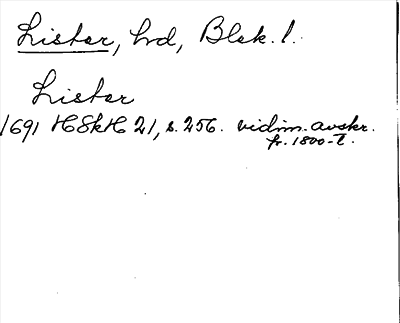 Lister, hd, Blek. l.
Lister
1691 HSkH 21, s. 256. vidim. avskr.
fr. 1800-t.